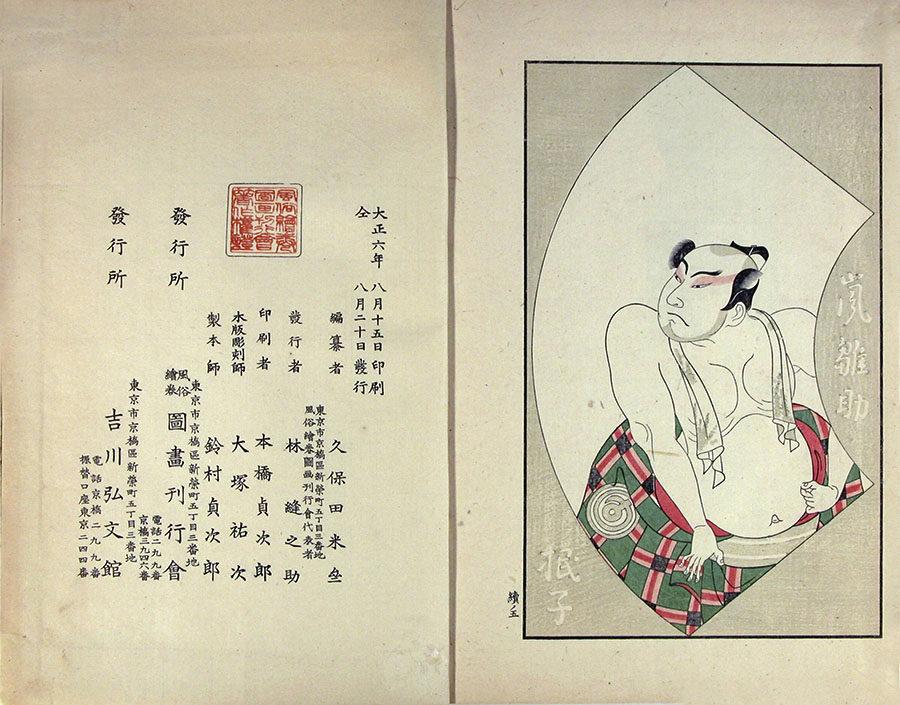 嵐雛助
眠子
續ノ五
大正六年八月十五日印刷
仝 八月二十日發行
編纂者 久保田米
東京市京橋區新榮町五丁目三番地
風俗繪卷圖畫刊行會代表者
發行者 林縫之助
印刷者 本橋貞次郎
木版彫刻師 大塚祐次
製本師 鈴村貞次郎
東京市京橋區新榮町五丁目三番地
發行所 風俗繪卷圖畫刊行會
電話二九九番
京橋三九四六番
東京市京橋區新榮町五丁目三番地
發行所 吉川弘文館
電話京橋二九九番
振替口座東京二四四番